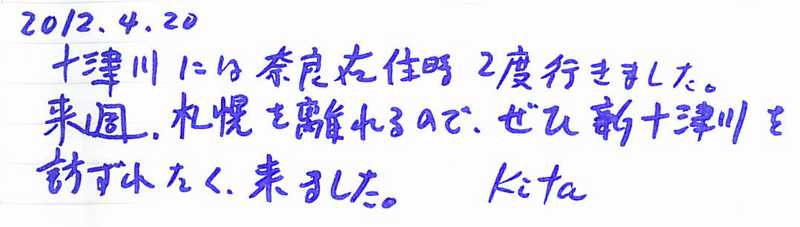 2012.4.20
十津川には奈良在住時2度行きました。
来週、札幌を離れるので、ぜひ新十津川を
訪ずれたく、来ました。 Kita